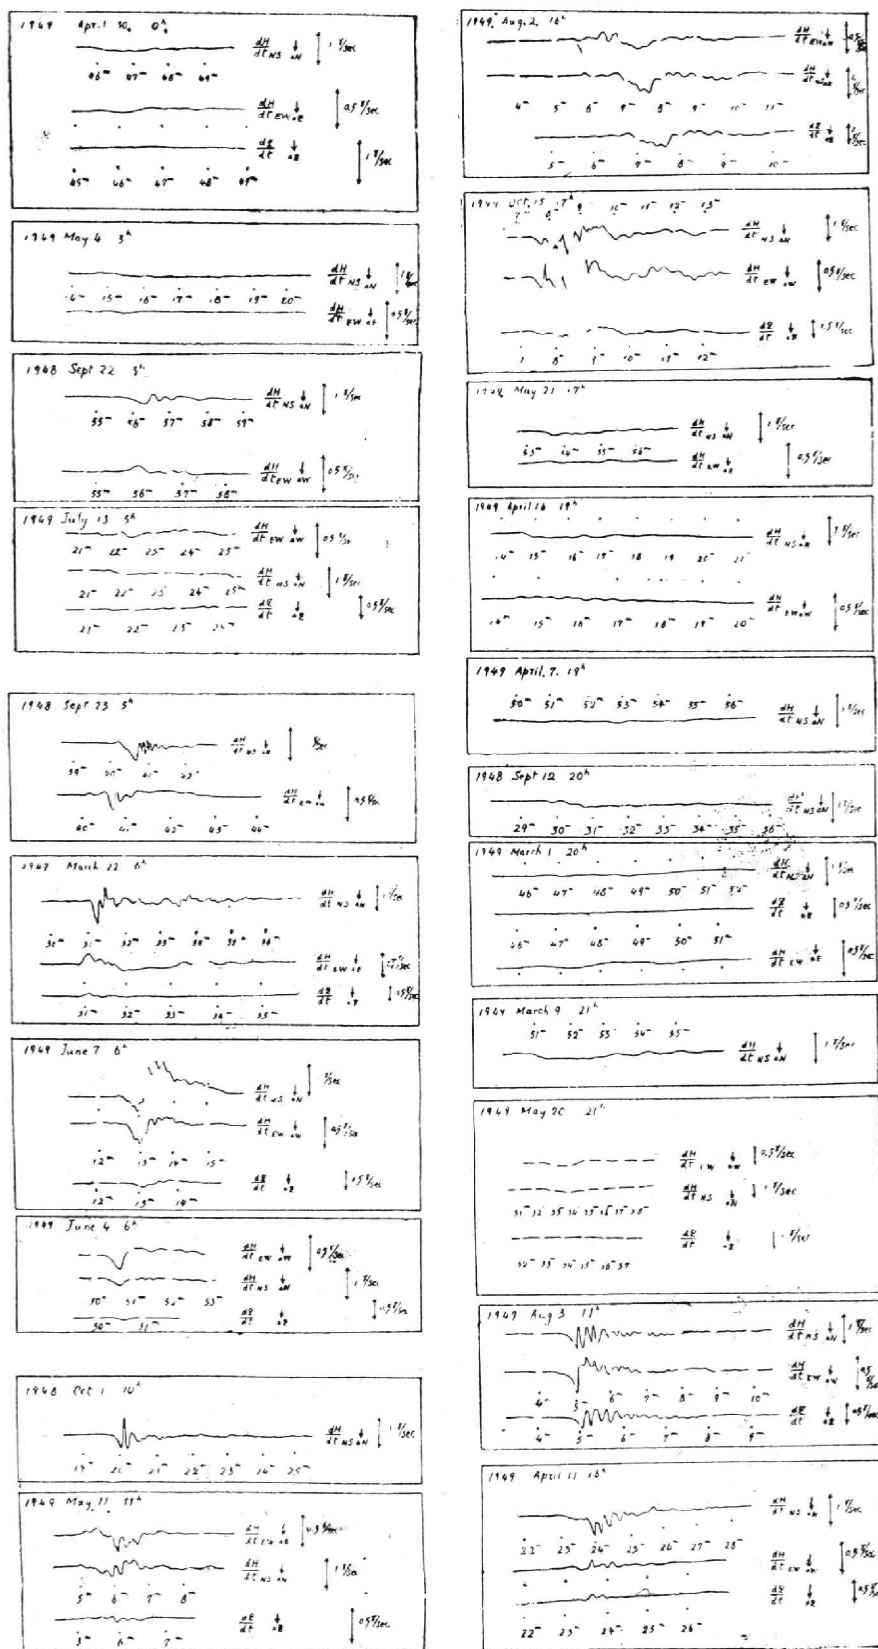 1949 Apr. 30. 0ʰ
dH/dt NS ↓ +N 1 γ/sec
46ᵐ 47ᵐ 48ᵐ 49ᵐ
dH/dt EW +E 0.5 γ/sec
dZ/dt ↓ +Z 1 γ/sec
45ᵐ 46ᵐ 47ᵐ 48ᵐ 49ᵐ
1949 May 4 3ʰ
dH/dt NS ↓ +N
14ᵐ 15ᵐ 16ᵐ 17ᵐ 18ᵐ 19ᵐ 20ᵐ
dH/dt EW ↓ 0.5 γ/sec
1948 Sept 22 5ʰ
dH/dt NS ↓ +N 1 γ/sec
55ᵐ 56ᵐ 57ᵐ 58ᵐ 59ᵐ
dH/dt EW ↓ +W
55ᵐ 56ᵐ 57ᵐ 58ᵐ
1949 July 13 5ʰ
dH/dt EW ↓ +W
21ᵐ 22ᵐ 23ᵐ 24ᵐ 25ᵐ
dH/dt NS ↓ +N 1 γ/sec
21ᵐ 22ᵐ 23ᵐ 24ᵐ 25ᵐ
dZ/dt ↓ +Z 0.5 γ/sec
21ᵐ 22ᵐ 23ᵐ 24ᵐ
1948 Sept 23 5ʰ
dH/dt NS ↓
39ᵐ 40ᵐ 41ᵐ 42ᵐ
dH/dt EW ↓
40ᵐ 41ᵐ 42ᵐ 43ᵐ 44ᵐ
March 22 6ʰ
dH/dt NS ↓ +N
30ᵐ 31ᵐ 32ᵐ 33ᵐ 34ᵐ 35ᵐ 36ᵐ
dH/dt EW ↓ +E
dZ/dt ↓ +Z 0.5 γ/sec
31ᵐ 32ᵐ 33ᵐ 34ᵐ 35ᵐ
1949 June 7 6ʰ
dH/dt NS ↓ +N γ/sec
dH/dt EW ↓ +W
12ᵐ 13ᵐ 14ᵐ 15ᵐ
dZ/dt ↓ +Z
12ᵐ 13ᵐ 14ᵐ
1949 June 4 6ʰ
dH/dt EW ↓ +W 0.5 γ/sec
dH/dt NS ↓ +N 1 γ/sec
50ᵐ 51ᵐ 52ᵐ 53ᵐ
dZ/dt ↓ +Z
50ᵐ 51ᵐ
1948 Oct 1
dH/dt NS ↓ +N 1 γ/sec
19ᵐ 20ᵐ 21ᵐ 22ᵐ 23ᵐ 24ᵐ 25ᵐ
1949 May 11
dH/dt EW ↓ 0.5 γ/sec
dH/dt NS ↓ +N
5ᵐ 6ᵐ 7ᵐ 8ᵐ
dZ/dt ↓ +Z 0.5 γ/sec
5ᵐ 6ᵐ 7ᵐ
1949, Aug. 2, 16ʰ
dH/dt EW ↓ +W
dH/dt NS ↓
4ᵐ 5ᵐ 6ᵐ 7ᵐ 8ᵐ 9ᵐ 10ᵐ 11ᵐ
dZ/dt ↓ +Z
5ᵐ 6ᵐ 7ᵐ 8ᵐ 9ᵐ 10ᵐ
Oct. 15 17ʰ
7ᵐ 8ᵐ 9ᵐ 10ᵐ 11ᵐ 12ᵐ 13ᵐ
dH/dt NS ↓ +N 1 γ/sec
dH/dt EW ↓ +W 0.5 γ/sec
dZ/dt ↓ +Z
7 8ᵐ 9ᵐ 10ᵐ 11ᵐ 12ᵐ
May 21 17ʰ
dH/dt NS ↓ +N 1 γ/sec
53ᵐ 54ᵐ 55ᵐ 56ᵐ
dH/dt EW ↓ +E 0.5 γ/sec
1949 April 16 19ʰ
dH/dt NS ↓ 1 γ/sec
14ᵐ 15ᵐ 16ᵐ 17ᵐ 18 19 20ᵐ 21ᵐ
dH/dt EW ↓ +W 0.5 γ/sec
14ᵐ 15ᵐ 16ᵐ 17ᵐ 18ᵐ 19ᵐ 20ᵐ
1949 April. 7. 19ʰ
50ᵐ 51ᵐ 52ᵐ 53ᵐ 54ᵐ 55ᵐ 56ᵐ
dH/dt NS ↓ +N 1 γ/sec
1948 Sept 12 20ʰ
dH/dt NS ↓ +N 1 γ/sec
29ᵐ 30ᵐ 31ᵐ 32ᵐ 33ᵐ 34ᵐ 35ᵐ 36ᵐ
1949 March 1 20ʰ
dH/dt NS ↓ +N 1 γ/sec
46ᵐ 47ᵐ 48ᵐ 49ᵐ 50ᵐ 51ᵐ 52ᵐ
dZ/dt ↓ +Z 0.5 γ/sec
46ᵐ 47ᵐ 48ᵐ 49ᵐ 50ᵐ 51ᵐ
dH/dt EW ↓ +E 0.5 γ/sec
March 9 21ʰ
51ᵐ 52ᵐ 53ᵐ 54ᵐ 55ᵐ
dH/dt NS ↓ +N 1 γ/sec
1949 May 20 21ʰ
dH/dt EW ↓ +W 0.5 γ/sec
dH/dt NS ↓ +N 1 γ/sec
31ᵐ 32ᵐ 33ᵐ 34 35ᵐ 36ᵐ 37ᵐ 38ᵐ
dZ/dt ↓ +Z 1 γ/sec
32ᵐ 33ᵐ 34ᵐ 35ᵐ 36ᵐ 37
Aug 3
dH/dt NS ↓ +N 1 γ/sec
dH/dt EW ↓ +W
4ᵐ 5ᵐ 6ᵐ 7ᵐ 8ᵐ 9ᵐ 10ᵐ
dZ/dt ↓ +Z
4ᵐ 5ᵐ 6ᵐ 7ᵐ 8ᵐ 9ᵐ
1949 April 11
dH/dt NS ↓ 1 γ/sec
22ᵐ 23ᵐ 24ᵐ 25ᵐ 26ᵐ 27ᵐ 28ᵐ
dH/dt EW ↓ 0.5 γ/sec
dZ/dt ↓ +Z
22ᵐ 23ᵐ 24ᵐ 25ᵐ 26ᵐ